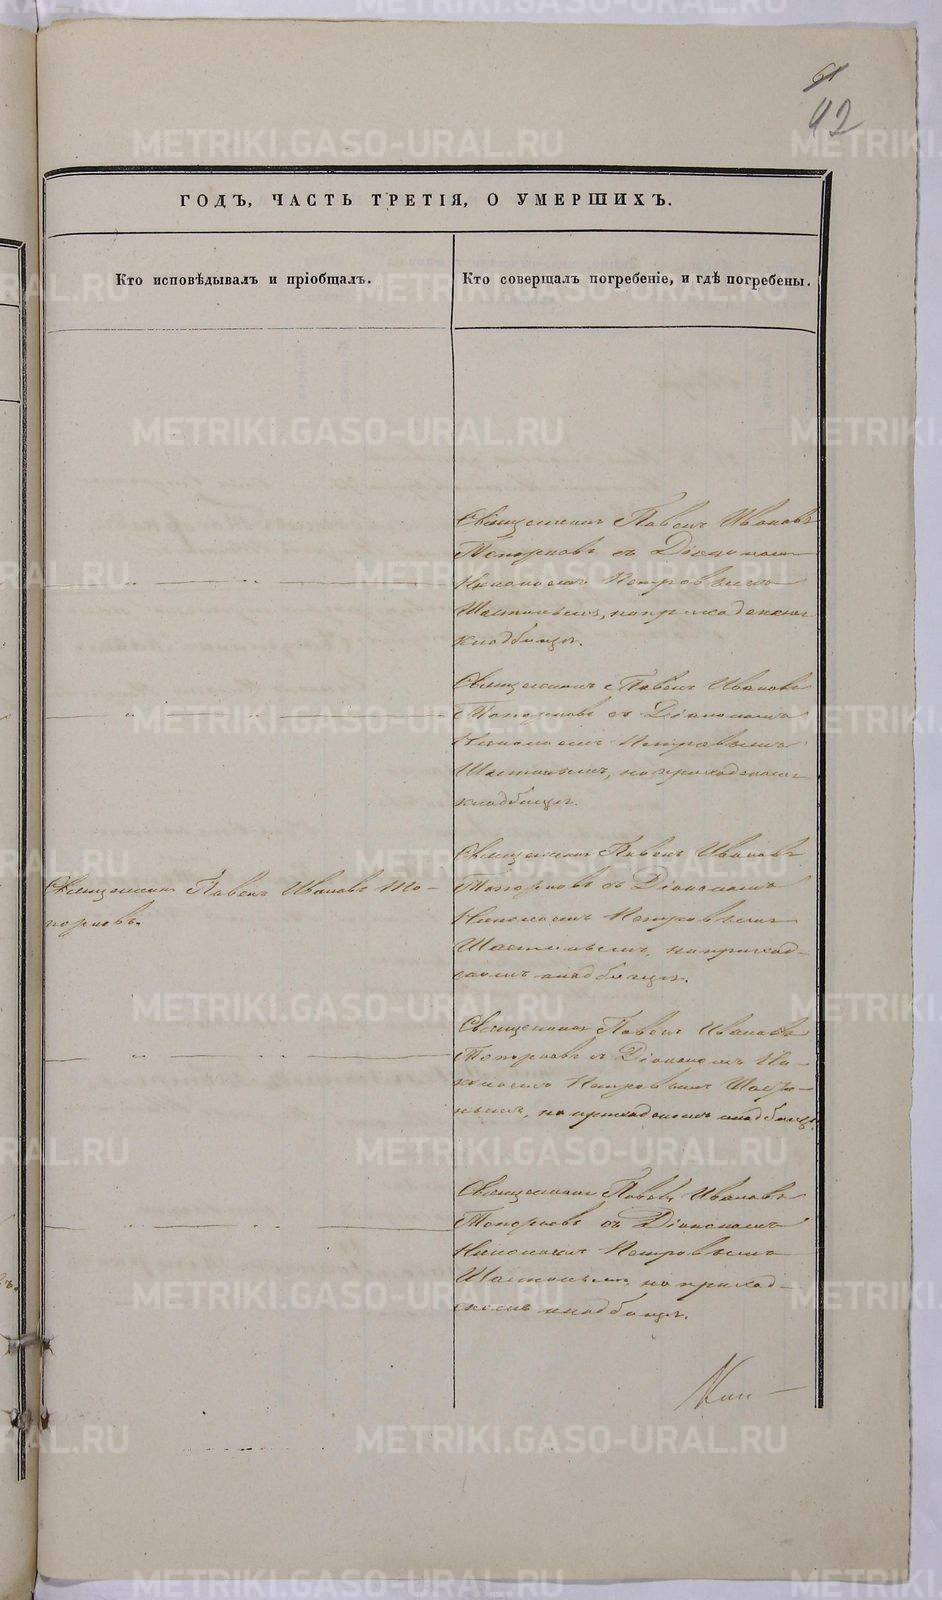 61
42
ГОДЪ, ЧАСТЬ ТРЕТІЯ, О УМЕРШИХЪ.
Кто исповѣдывалъ и пріобщалъ.
Кто совершалъ погребеніе, и гдѣ погребены.
Священникъ Павелъ Ивановъ
Топорковъ съ Діакономъ
Николаемъ Петровымъ
на приходскомъ
кладбищѣ.
Священникъ Павелъ Ивановъ
Топорковъ съ Діакономъ
Николаемъ Петровымъ
на приходскомъ
кладбищѣ.
Священникъ Павелъ Ивановъ То-
порковъ.
Священникъ Павелъ Ивановъ
Топорковъ съ Діакономъ
Николаемъ Петровымъ
на приход-
скомъ кладбищѣ.
Священникъ Павелъ Ивановъ
Топорковъ съ Діакономъ Ни-
колаемъ Петровымъ
на приходскомъ кладбищѣ.
Священникъ Павелъ Ивановъ
Топорковъ съ Діакономъ
Николаемъ Петровымъ
на приход-
скомъ кладбищѣ.
METRIKI.GASO-URAL.RU